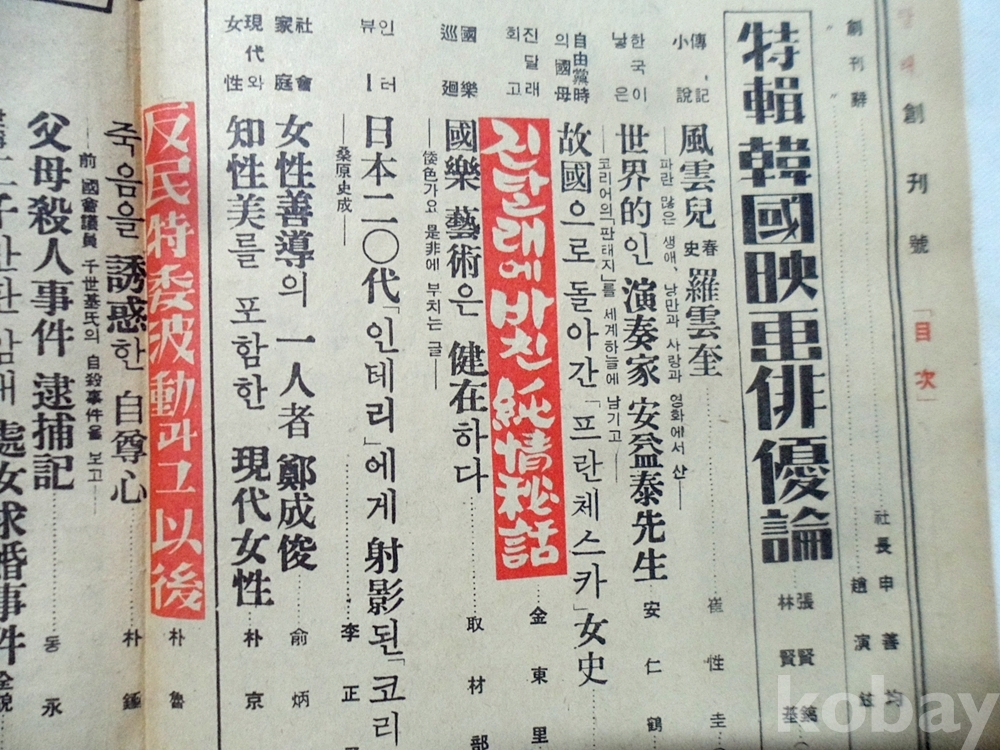 創刊號「目次」
創刊辭 社長 申善均
趙演
特輯 韓國映画俳優論 張賢鎬
林賢基
傳記小說 風雲兒 春史 羅雲奎 崔性圭
―파란 많은 생애, 낭만과 사랑과 영화에서 산―
한국이 낳은 世界的인 演奏家 安益泰先生 安仁鶴
―코리어의「판태지」를 세계하늘에 남기고―
自由黨時의 國母 故國으로 돌아간「프란체스카」女史
진달래회고 진달래에 바친 純情秘話 金東里
國樂巡廻 國樂 藝術은 健在하다 取材部
―倭色가요 是非에 부치는 글―
인터뷰 日本二〇代「인테리」에게 射影된「코리
―桑原史成― 李正
社會家庭 女性善導의 一人者 鄭成俊 兪炳
現代와 女性 知性美를 포함한 現代女性 朴京
反民特委波動과 그 以後 朴魯
죽음을 誘惑한 自尊心 朴鍾
―前 國會議員 千世基氏의 自殺事件을 보고―
父母殺人事件 逮捕記 동永
處女求婚事件 全貌
kobay